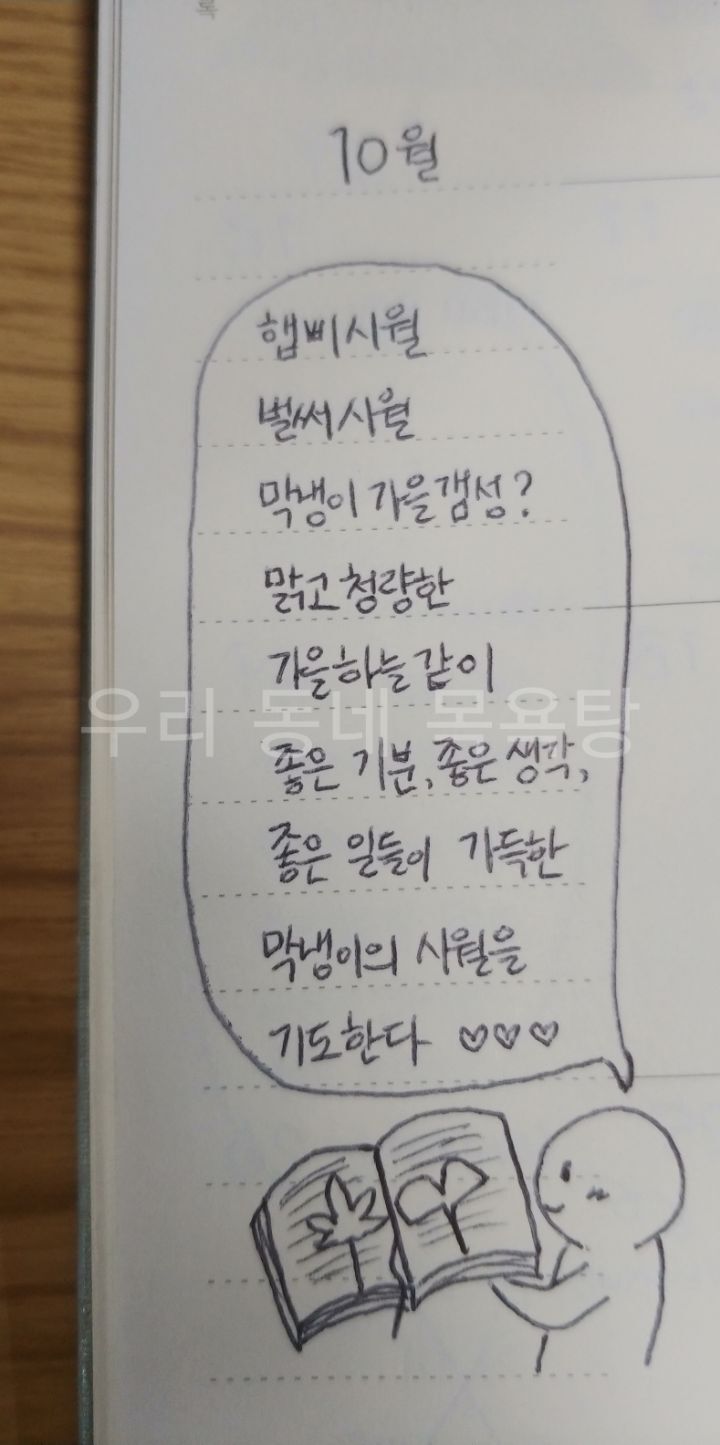 10월
햅삐시월
벌써시월
막냉이 가을갬성?
맑고청량한
가을하늘같이
우리 동네 목욕탕
좋은 기분, 좋은 생각,
좋은 일들이 가득한
막냉이의 시월을
기도한다 ♡♡♡